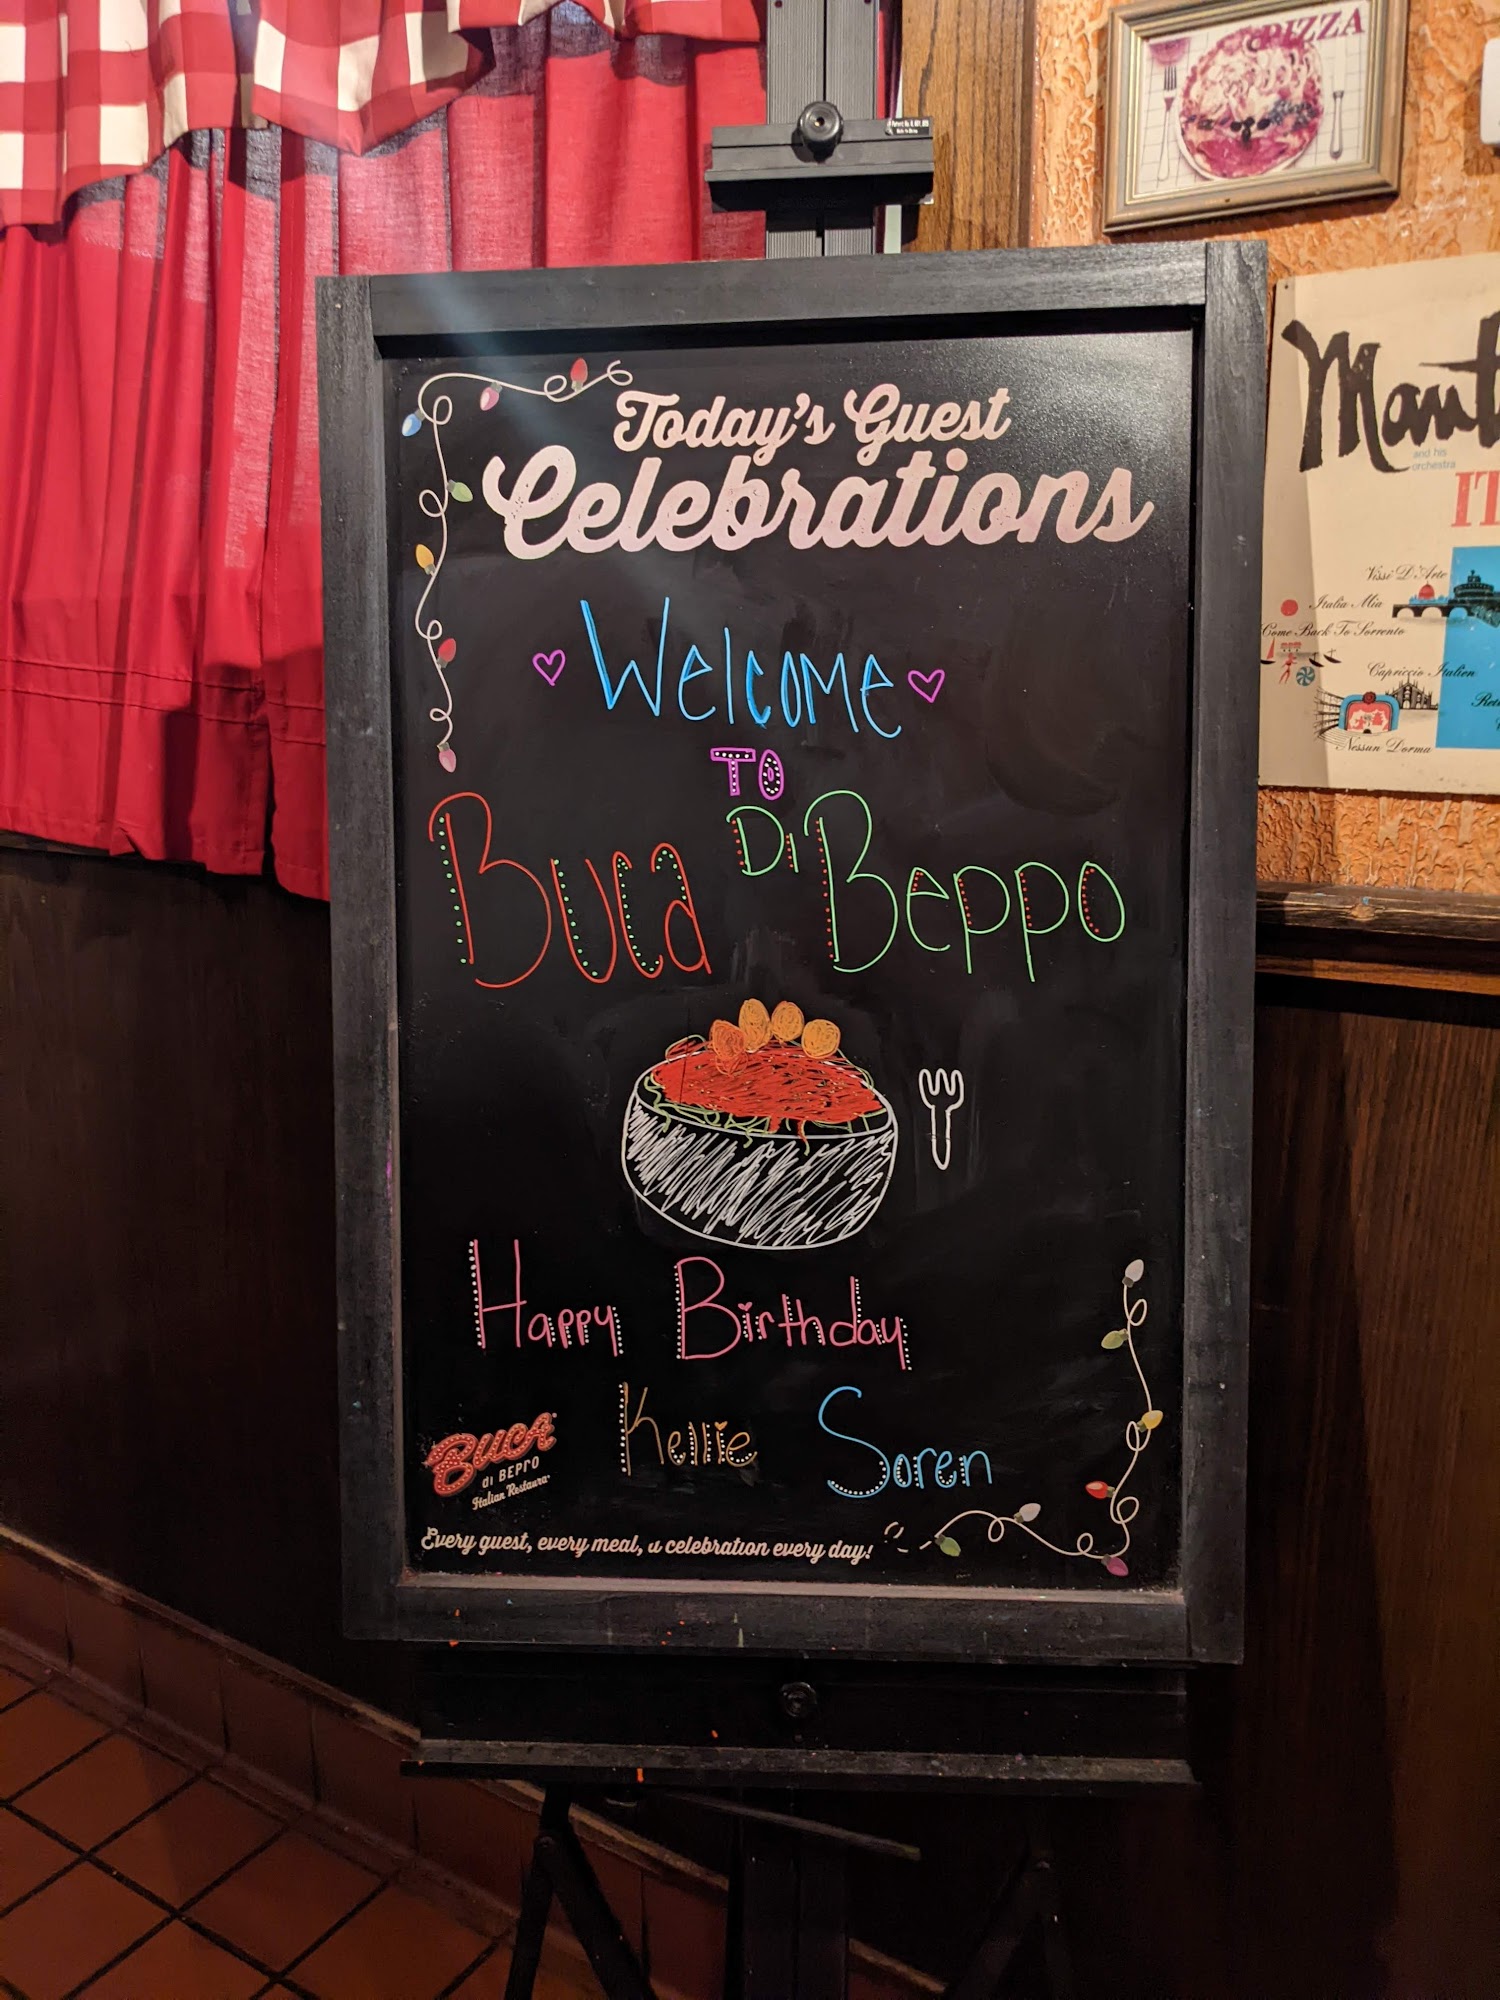 PIZZA
Today's Guest
Celebrations
Welcome
TO
Buca Di Beppo
Happy Birthday
Kellie Soren
BUCA
di BEPPO
Italian Restaurant
Every guest, every meal, a celebration every day!
and his
orchestra
Vissi D'Arte
Italia Mia
Come Back To Sorrento
Capriccio Italien
Nessun Dorma